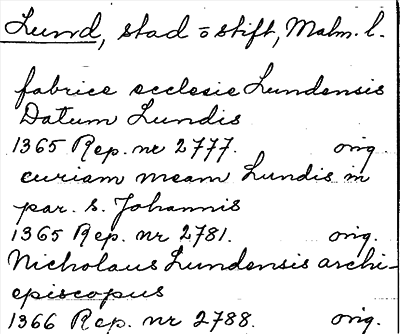 Lund, stad o stift, Malm. l.
fabrice ecclesie Lundensis
Datum Lundis
1365 Rep. nr 2777. orig.
curiam meam Lundis in
par. s. Johannis
1365 Rep. nr 2781. orig.
Nicholaus Lundensis archi-
episcopus
1366 Rep. nr 2788. orig.